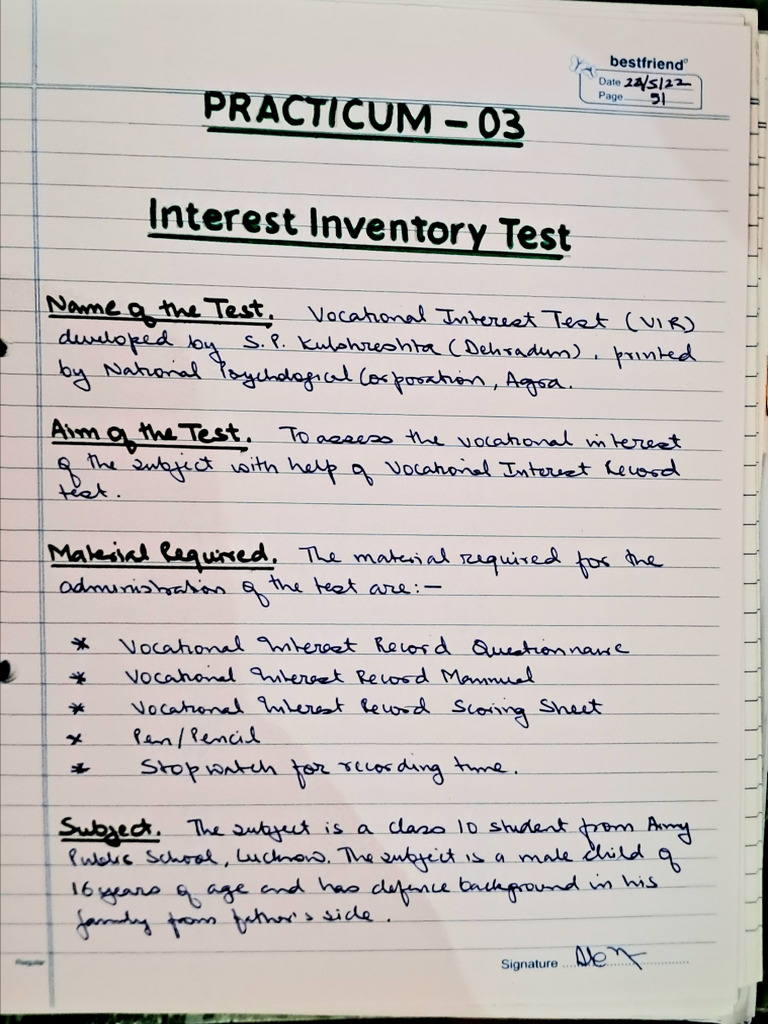 bestfriend
Date 28/5/22
Page 51
PRACTICUM - 03
Interest Inventory Test
Name of the Test. Vocational Interest Test (VIR)
developed by S.P. Kulshreshta (Dehradun), printed
by National Psychological Corporation, Agra.
Aim of the Test. To assess the vocational interest
of the subject with help of Vocational Interest Record
test.
Material Required. The material required for the
administration of the test are:-
* Vocational Interest Record Questionnaire
* Vocational Interest Record Mannual
* Vocational Interest Record Scoring Sheet
* Pen/Pencil
* Stopwatch for recording time.
Subject. The subject is a class 10 student from Army
Public School, Lucknow. The subject is a male child of
16 years of age and has defence background in his
family from father's side.
Regular
Signature